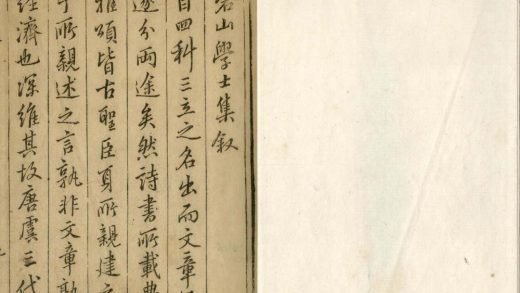 山學士集叙
自四科三立之名出而文章
遂分兩途矣然詩書所載典
雅頌皆古聖臣所親建
子所親述之言孰非文章孰
經濟也深維其故唐虞三代